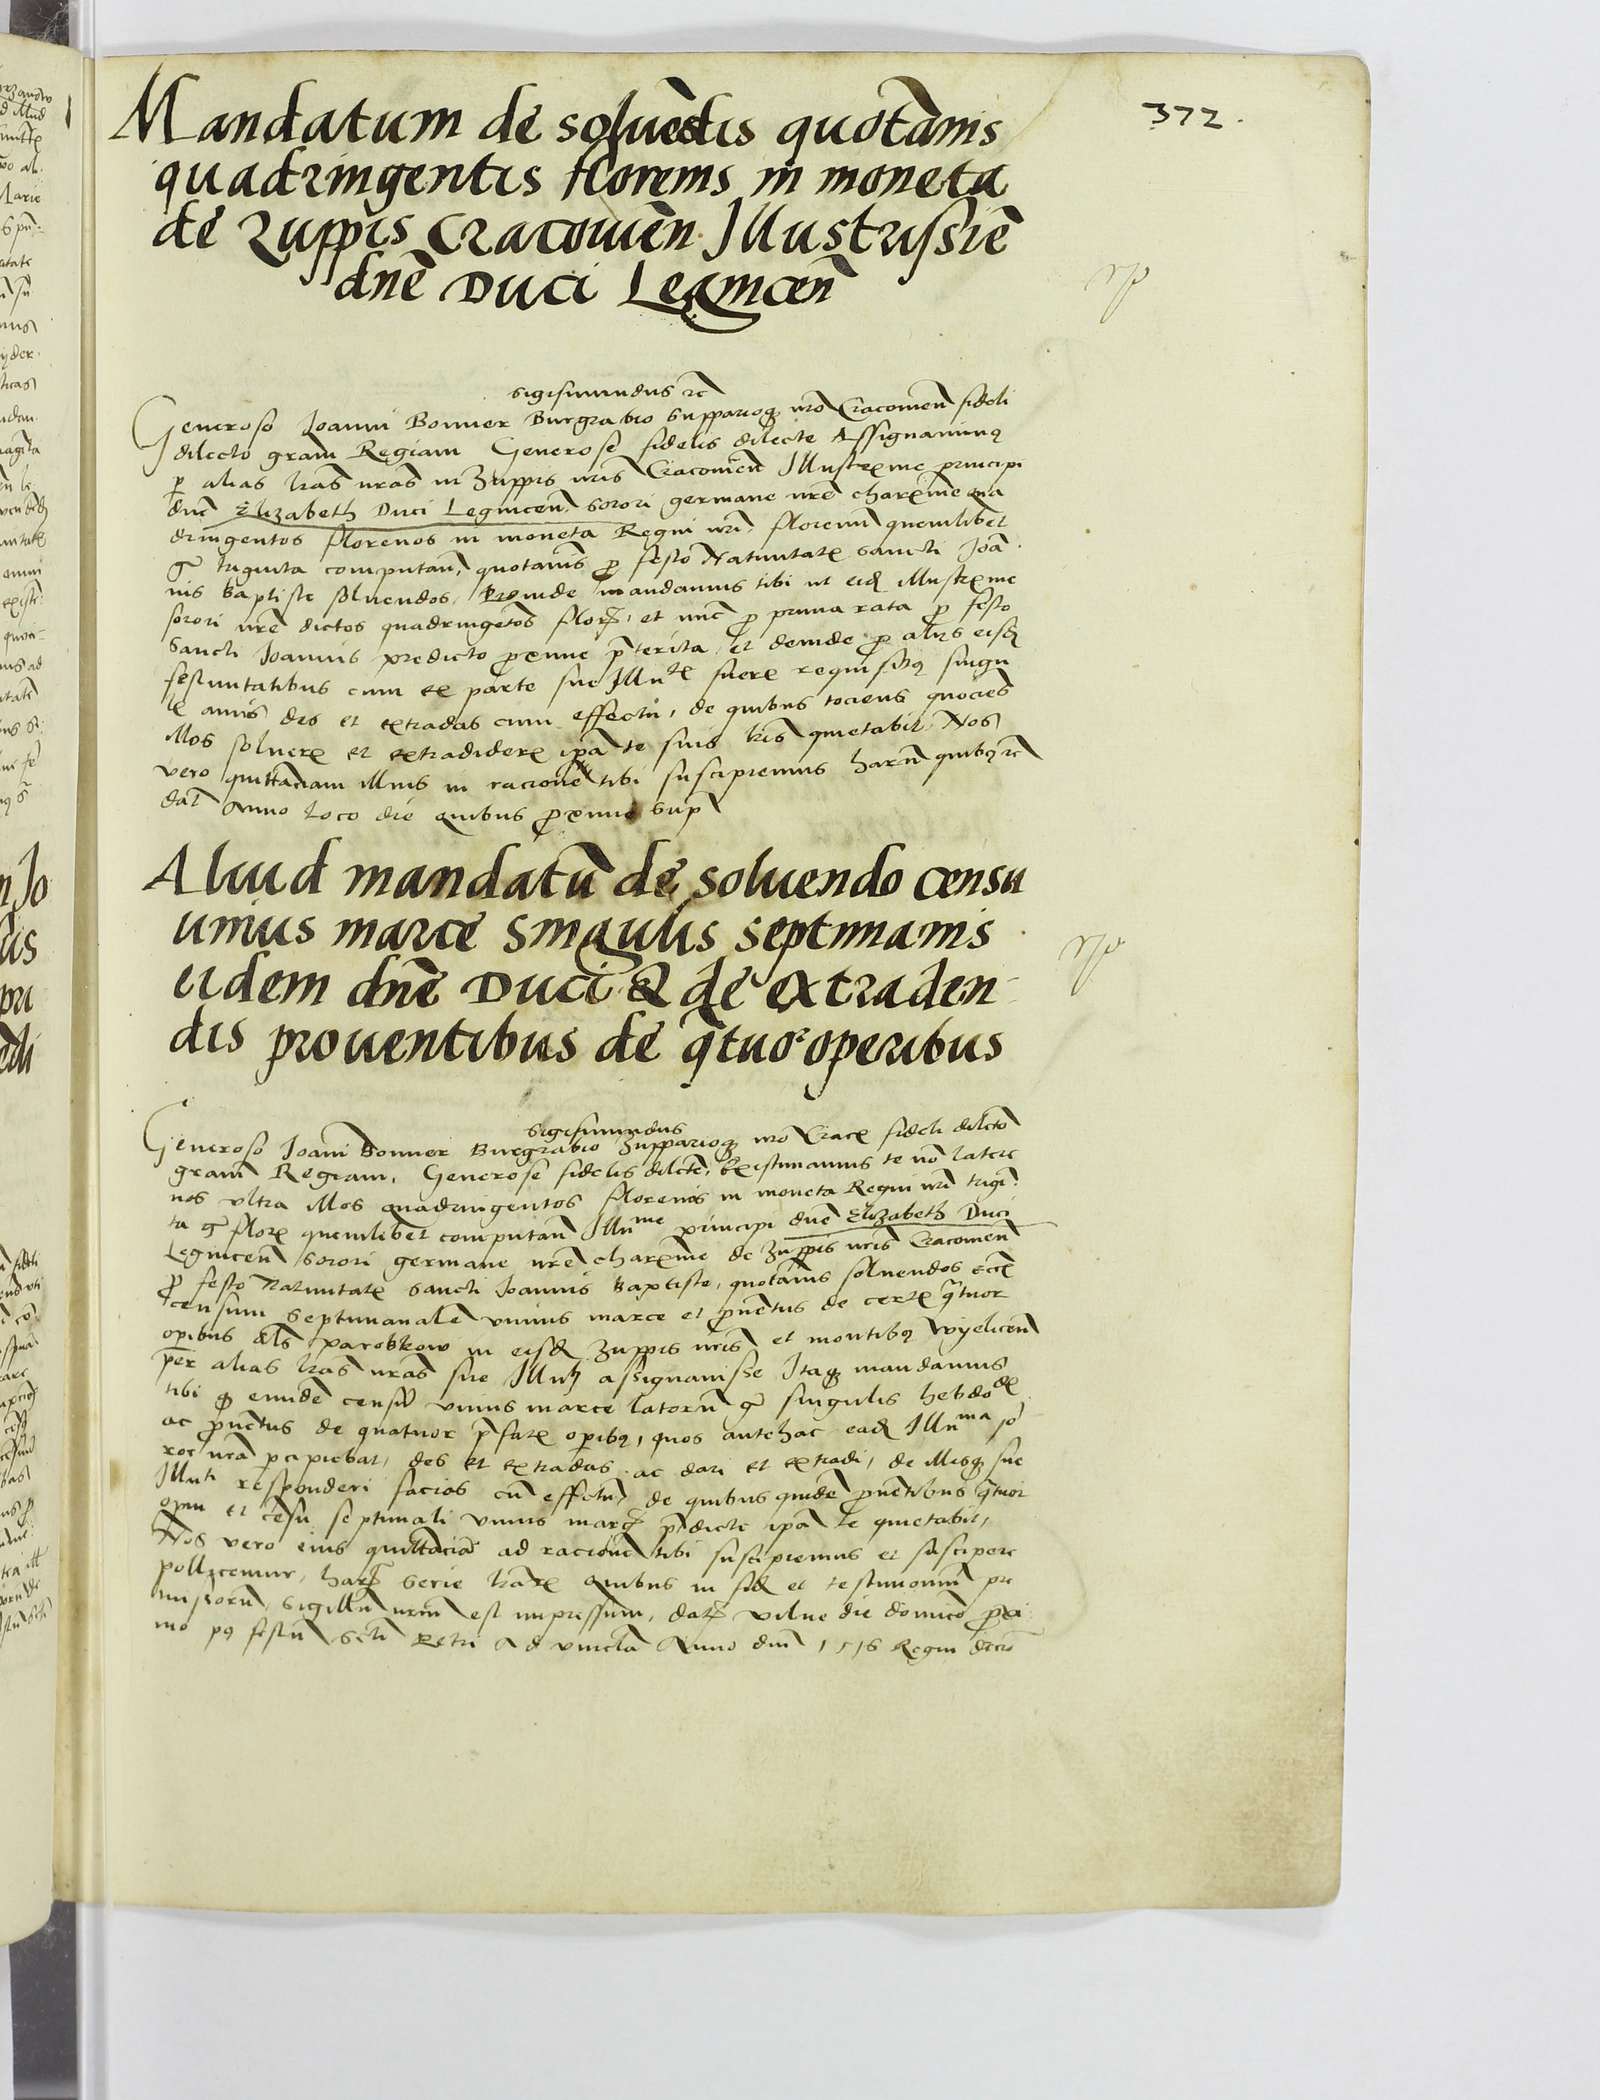 372.
Mandatum de soluēdis quotānis
quadringentis florenis in moneta
de zuppis Cracouien̄ Illustrissīe
dn̄e Duci Legnicen̄
Sigismundus
Generoso Ioanni Bonner Burgrabio Supparioq; nr̄o Cracouien̄ fideli
dilecto gram̄ Regiam Generose fidelis dilecte Assignauimus
p alias lr̄as nr̄as in Zuppis nr̄is Cracouien̄ Illustrme principi
dn̄e Elizabeth Duci Legnicen̄ sorori germane nr̄e charme qua
dringentos florenos in moneta Regni nr̄i, florenū quemlibet
ꝑ triginta computan̄, quotanis ꝓ festo Natiuitat Sancti Joā
nis Baptiste soluendos, Proinde mandamus tibi ut eid illustrme
sorori nr̄e dictos quadringētos flor, et nūc ꝓ prima rata ꝓ festo
Sancti Joannis predicto ꝓxime p̄terita et deinde ꝓ alijs eisd
festiuitatibus cum ex parte sue Illu fuer requisitus singu
l annis des et extradas cum effectu, de quibus tociens quociens
illos soluer et extradider ip̄a te suis lr̄is quietabit Nos
vero quittanciam illius in racionē tibi suscipiemus harū quibus
dat̄ Anno loco die quibus ꝓxime sup
Aliud mandatū de soluendo censu
unius marce singulis septimanis
eidem dn̄e Duci & de extraden
dis prouentibus de q̄tuor operibus
Sigismundus
Generoso Joān̄i Bonner Burgrabio Zuppariog; nr̄o Crac fideli dilcto
gram̄ Regiam, Generose fidelis dilcte, Existimamus te nō latere
nos vltra illos quadringentos florenos in moneta Regni nr̄i trigi
ta gr̄ flor quemlibet computan̄ Illume principi dn̄e Elizabeth Duci
Legnicen̄ sorori germane nr̄e charme de Zuppis nr̄is Cracouien̄
ꝓ festo Natiuitat Sancti Joannis Baptiste, quotānis soluendos
censum septimanale vnius marce et ꝓuētus de cert q̄tuor
op̄ibus als parobkow in eisd Zuppis nr̄is et montibus Wyelicen̄
per alias lr̄as nr̄as sue Illu assignauisse Itaq; mandamus
tibi eundē censū vnius marce latorū gr̄ singulis hebdo
ac ꝓuētus de quatuor p̄fat op̄ibus, quos antehac ead Illuma so
ror nr̄a p̄cipiebat, des et extradas ac dari et extradi, de illisq; sue
Illuti responderi facias cū effectu, de quibus quidē ꝓuētibus q̄tuor
opm̄ et cēsu septimali vnius marc p̄dicte ip̄a te quietabit,
Nos vero eius quittanciā ad racionē tibi suscipiemus et suscipere
pollicemur, har serie lr̄ar quibus in fid et testimoniū pre
missorū, sigillū nr̄m est impressum, dat Vilne die dominico ꝓxi
mo p9 festū Scti Petri Ad vincla Anno dn̄i 1516 Regni